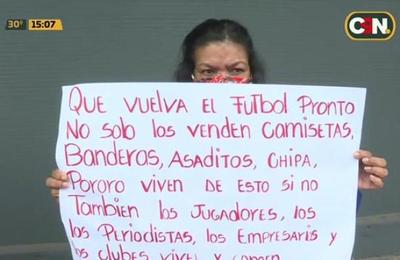 30° 15:07
C9N
QUE VUELVA EL FUTBOL PRONTO
NO SOLO LOS VENDEN CAMISETAS,
BANDERAS, ASADITOS, CHIPA,
PORORO VIVEN DE ESTO SI NO
TAMBIEN LOS JUGADORES, LOS
LOS PERIODISTAS, LOS EMPRESARIS Y
LOS CLUBES VIVEL Y COMEN